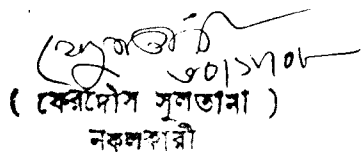 ৩০/১২/০৮
( ফেরদৌস সুলতানা )
নকলকারী